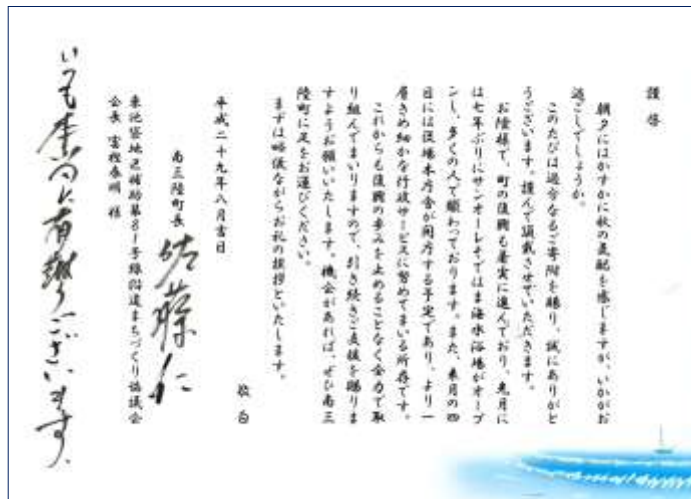 謹啓
朝夕にはかすかに秋の気配を感じますが、いかがお
過ごしでしょうか。
このたびは過分なるご寄附を賜り、誠にありがと
うございます。謹んで頂戴させていただきます。
お陰様で、町の復興も着実に進んでおり、先月に
は七年ぶりにサンオーレそではま海水浴場がオープ
ンし、多くの人で賑わっております。また、来月の四
日には役場本庁舎が開庁する予定であり、より一
層きめ細かな行政サービスに努めてまいる所存です。
これからも復興の歩みを止めることなく全力で取
り組んでまいりますので、引き続きご支援を賜りま
すようお願いいたします。機会があれば、ぜひ南三
陸町に足をお運びください。
まずは略儀ながらお礼の挨拶といたします。
敬白
平成二十九年八月吉日
南三陸町長 佐藤仁
東池袋地区補助第81号線沿道まちづくり協議会
会長 富樫春明 様
いつも本当に有難うございます。